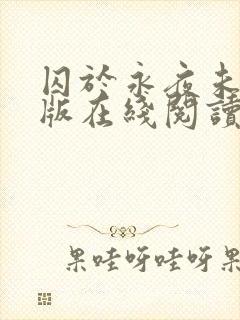 囚於永夜未
版在綫閱讀
果哇呀哇呀果